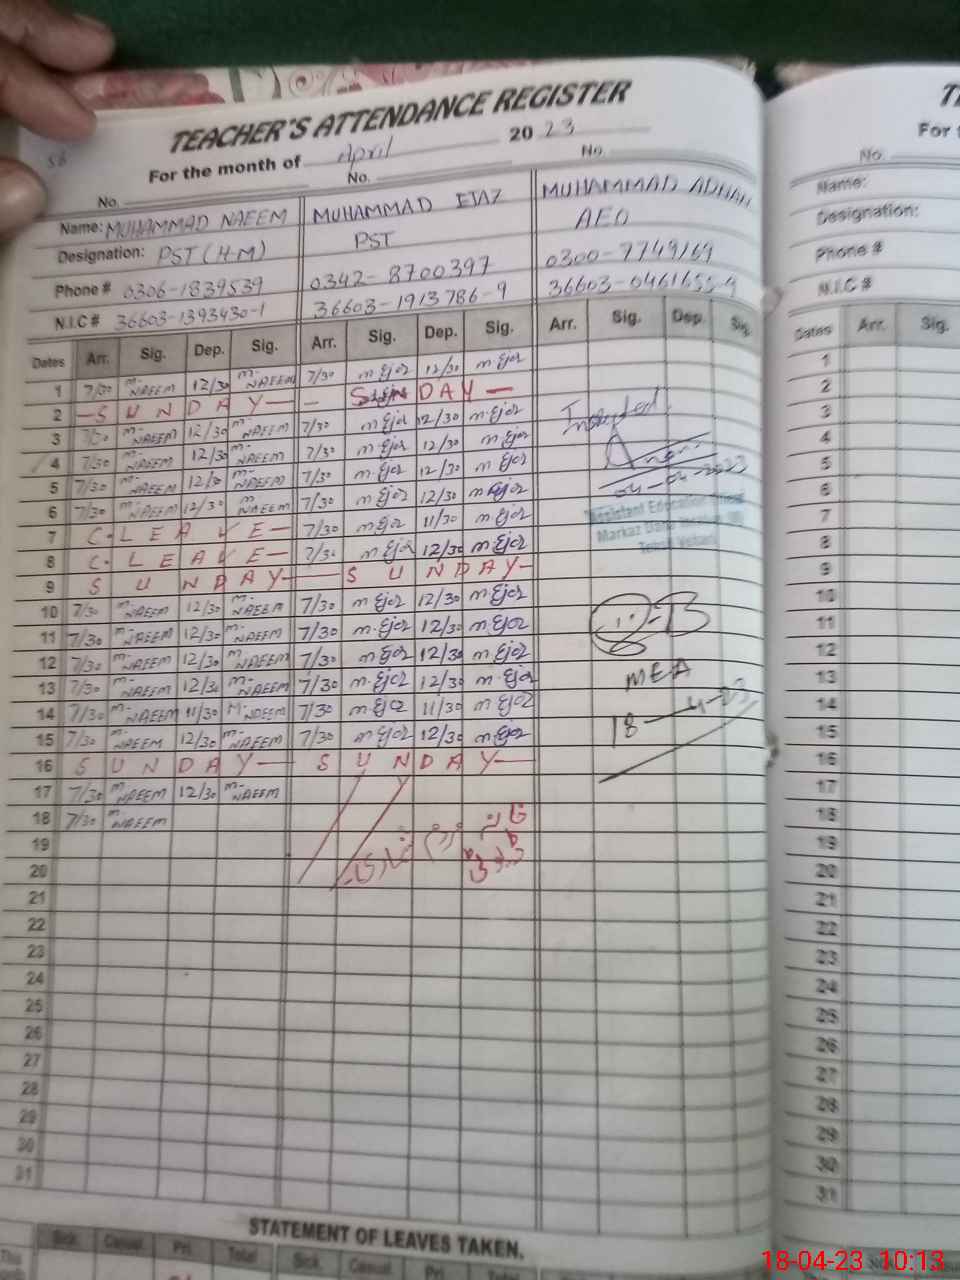 56
TEACHER'S ATTENDANCE REGISTER
For the month of April 2023
No. No. No.
Name: MUHAMMAD NAEEM MUHAMMAD EJAZ MUHAMMAD ADNAN
Designation: PST (H-M) PST AEO
Phone # 0306-1839539 0342-8700397 0300-7749169
N.I.C # 36603-1393430-1 36603-1913786-9
Dates Arr. Sig. Dep. Sig. Arr. Sig. Dep. Sig. Arr. Sig. Dep. Sig.
1 7/30 M-NAEEM 12/30 M-NAEEM 7/30 m Ejaz 12/30 m Ejaz
2 -SUNDAY- - SUNDAY -
3 7/30 M-NAEEM 12/30 M-NAEEM 7/30 m Ejaz 12/30 m Ejaz
4 7/30 M-NAEEM 12/30 M-NAEEM 7/30 m Ejaz 12/30 m Ejaz
5 7/30 M-NAEEM 12/30 M-NAEEM 7/30 m Ejaz 12/30 m Ejaz
6 7/30 M-NAEEM 12/30 M-NAEEM 7/30 m Ejaz 12/30 m Ejaz
7 C. LEAVE - 7/30 m Ejaz 11/30 m Ejaz
8 C. LEAVE - 7/30 m Ejaz 12/30 m Ejaz
9 SUNDAY - SUNDAY -
10 7/30 M-NAEEM 12/30 M-NAEEM 7/30 m Ejaz 12/30 m Ejaz
11 7/30 M-NAEEM 12/30 M-NAEEM 7/30 m Ejaz 12/30 m Ejaz
12 7/30 M-NAEEM 12/30 M-NAEEM 7/30 m Ejaz 12/30 m Ejaz
13 7/30 M-NAEEM 12/30 M-NAEEM 7/30 m Ejaz 12/30 m Ejaz
14 7/30 M-NAEEM 11/30 M-NAEEM 7/30 m Ejaz 11/30 m Ejaz
15 7/30 M-NAEEM 12/30 M-NAEEM 7/30 m Ejaz 12/30 m Ejaz
16 SUNDAY - SUNDAY -
17 7/30 M-NAEEM 12/30 M-NAEEM
18 7/30 M-NAEEM
19
20
21
22
23
24
25
26
27
28
29
30
31
Inspected
04-04-2023
Assistant Education Officer
Markaz
MEA
18-4-23
STATEMENT OF LEAVES TAKEN.
Sick Casual Pri. Total Sick Casual Pri.
For
No.
Name:
Designation:
Phone #
N.I.C #
Dates Arr. Sig.
1
2
3
4
5
6
7
8
9
10
11
12
13
14
15
16
17
18
19
20
21
22
23
24
25
26
27
28
29
30
31
18-04-23 10:13